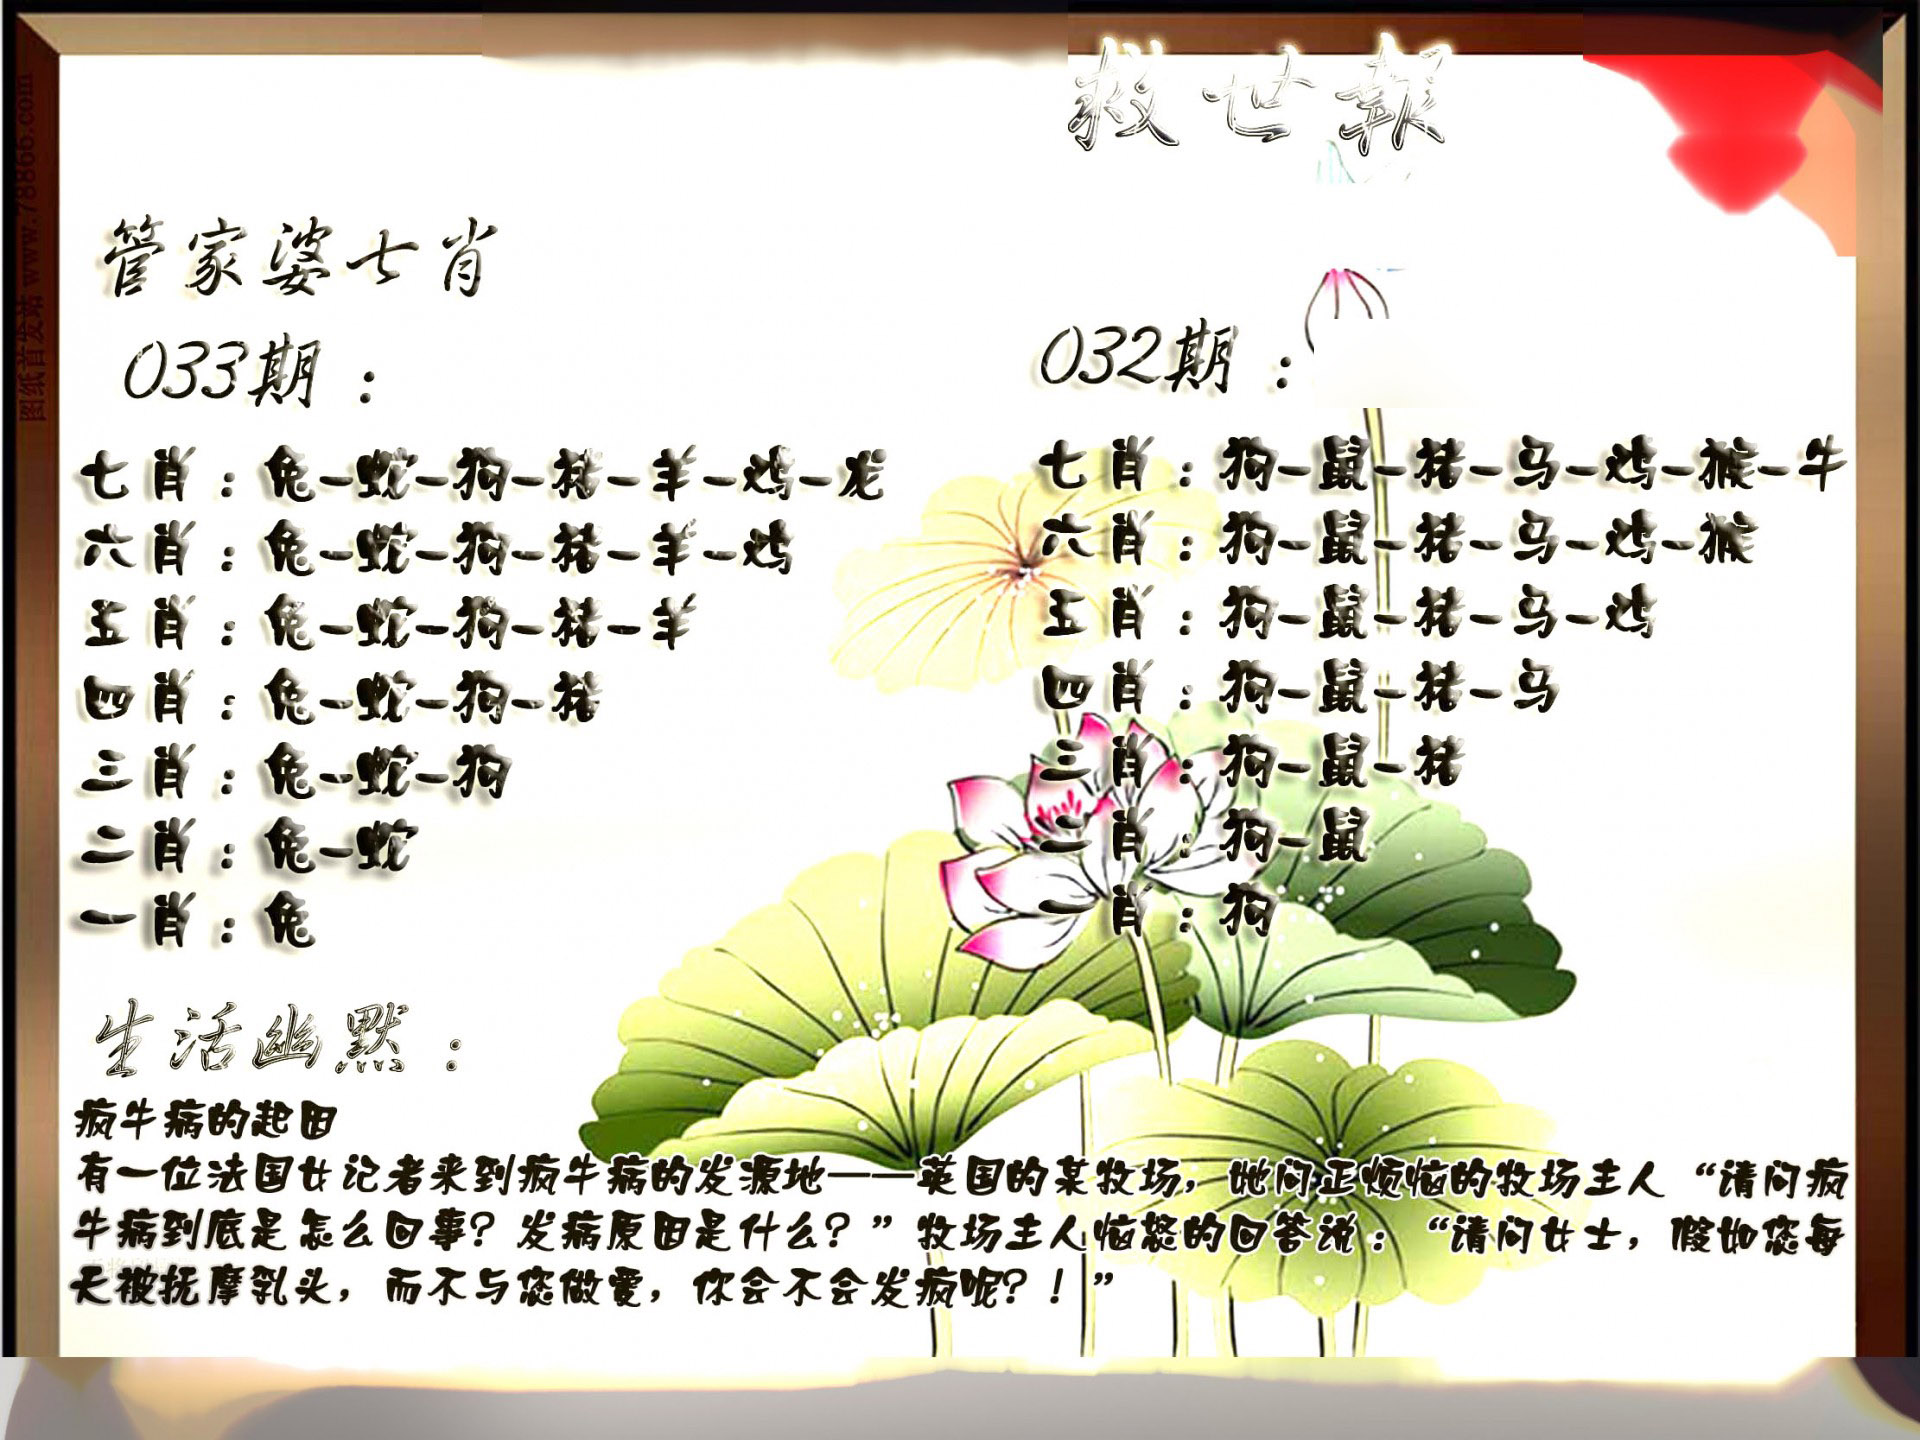 救世報
管家婆七肖
033期：
七肖：兔-蛇-狗-猪-羊-鸡-龙
六肖：兔-蛇-狗-猪-羊-鸡
五肖：兔-蛇-狗-猪-羊
四肖：兔-蛇-狗-猪
三肖：兔-蛇-狗
二肖：兔-蛇
一肖：兔
032期：
七肖：狗-鼠-猪-马-鸡-猴-牛
六肖：狗-鼠-猪-马-鸡-猴
五肖：狗-鼠-猪-马-鸡
四肖：狗-鼠-猪-马
三肖：狗-鼠-猪
二肖：狗-鼠
一肖：狗
生活幽默：
疯牛病的起因
有一位法国女记者来到疯牛病的发源地——英国的某牧场，她问正烦恼的牧场主人“请问疯
牛病到底是怎么回事？发病原因是什么？”牧场主人恼怒的回答说：“请问女士，假如您每
天被抚摩乳头，而不与您做爱，你会不会发疯呢？！”
图纸首发站 www.78866.com